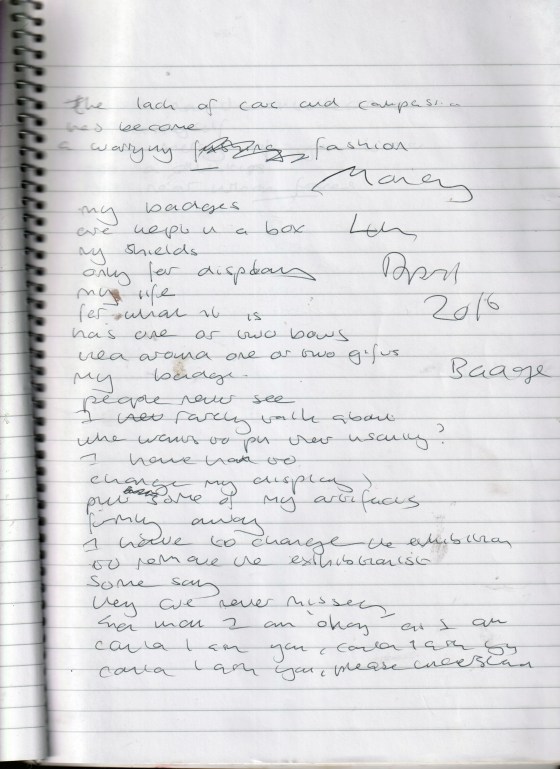 the lack of care and compassion
has become
a worrying fashion
Monday
my badges
are kept in a box
my shields
only for display
April
my life
2016
for what it is
has one or two bows
tied around one or two gifts
my badge.
Badge
people never see
I rarely talk about
who wants to pn view usually?
I have had to
change my display
put some of my artifacts
firmly away
I have to change the exhibition
to remove the exhibitionist
Some say
they are never missed
that man I am 'okay' as I am
could I ask you, could I ask you
could I ask you, please understand